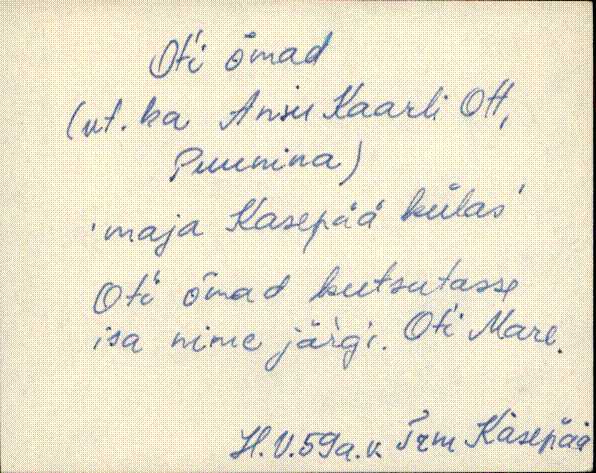 Oti õmad
(vt. ka Ansu Kaarli Ott,
Puunina)
'maja Kasepää külas'
Oti õmad kutsutasse
isa nime järgi. Oti Mare.
H.V. 59 a.v. Trm Kasepää